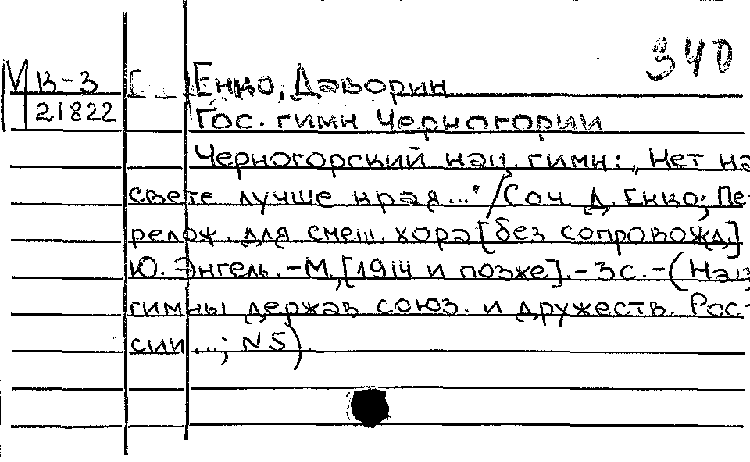 340
М В-3 Енко, Даворин
21822 Гос. гимн Черногории
Черногорский нац. гимн: „Нет на
свете лучше края..."/Соч. Д. Енко; Пе-
релож. для смеш. хора [без сопровожд.]
Ю. Энгель. -М., [1914 и позже]. -3с. -(Нац.
гимны держав союз. и дружеств. Рос-
сии...; N5).